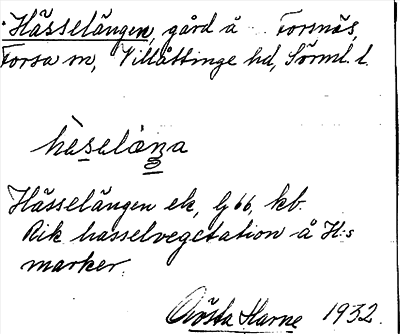 Hässelängen, gård å Forsnäs,
Forsa sn, Villåttinge hd, Sörml. l.
hàsalàŋa
Hässelängen ek, Lj 66, kb.
Rik hasselvegetation å H:s
marker.
Gösta Harne 1932.